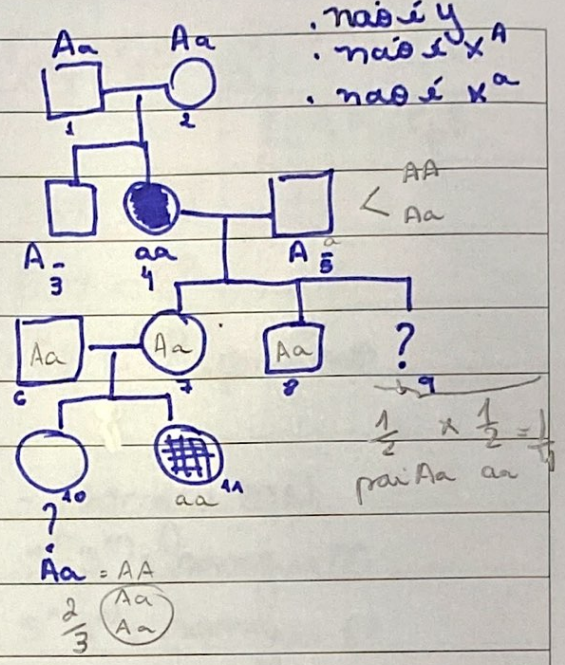 . não é y
. não é x^A
. não é x^a
Aa Aa
1 2
AA
Aa
A_ aa A a
3 4 5
Aa Aa Aa ?
6 7 8 9
1/2 x 1/2 = 1/4
pai Aa aa
10 11
? aa
Aa = AA
Aa
2/3 Aa